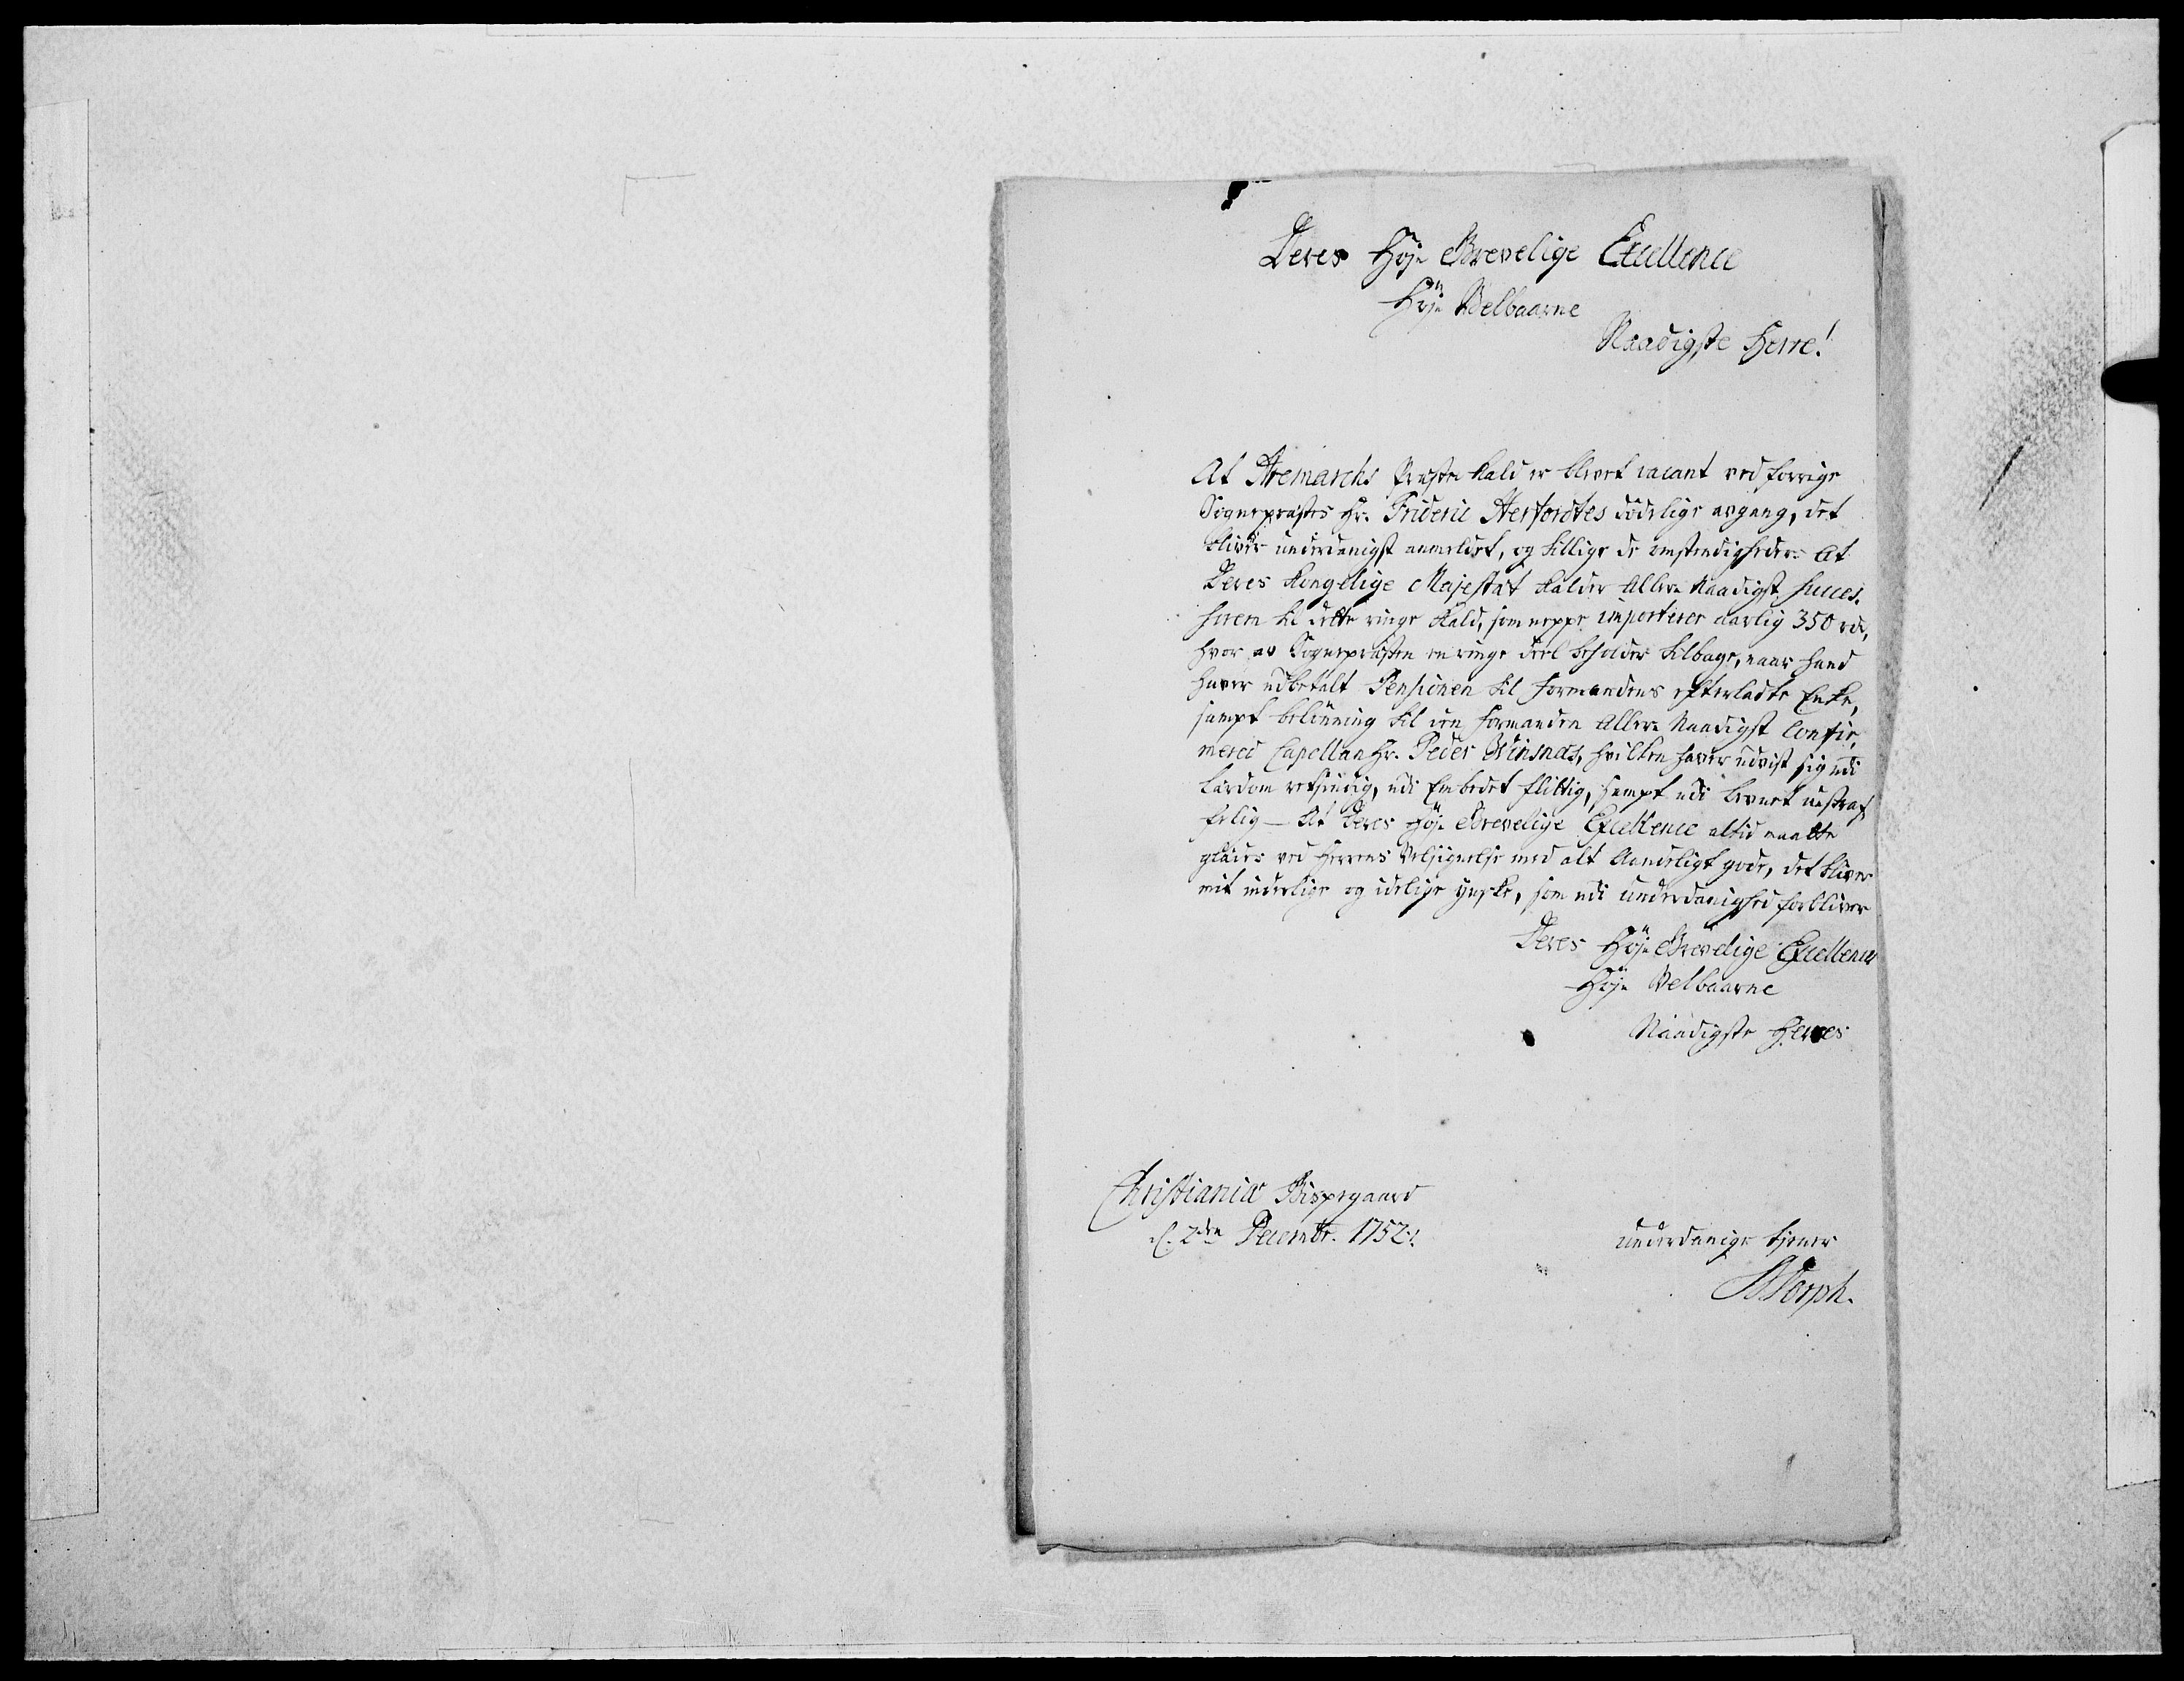 Deres Høje Grevelige Excellence
Høje Velbaarne
Naadigste Herre!
At Aremarchs Præste Kald er blevet vacant ved forrige
Sognepræstes Hr. Frideric Herfordtes dødelige avgang, det
bliver underdanigst anmeldet, og tillige de omstendigheder: At
Deres Kongelige Majestæt kalder Aller Naadigst succes-
soren til dette ringe Kald, som neppe importerer aarlig 350 rdr,
hvor av Sognepræsten en ringe deel beholder tilbage, naar hand
haver udbetalt Pensionen til formandens efterladte Enke,
sampt belønning til den formanden Aller Naadigst Confir-
mered Capellan Hr. Peder Winsnæs, hvilken haver udvist sig udi
lærdom retsindig, udi Embedet flittig, sampt udi levnet ustraf-
felig - At Deres Høje Grevelige Excellence altid maatte
glædes ved Herrens Velsignelse med alt Aandeligt gode, det bliver
mit inderlige og idelige ynske, som udi underdanighed forbliver
Deres Høje Grevelige Excellences
Høje Velbaarne
Naadigste Herres
Christianiæ Bispegaard
d. 2den Decembr. 1752.
underdanige tjener
Dorph.